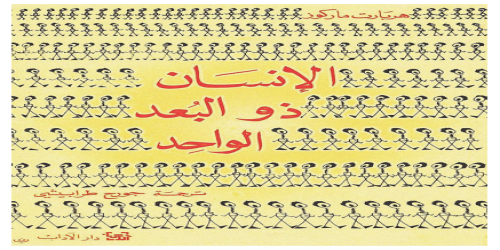 هربارت ماركوز
الإنسان
ذو البُعد
الواحد
ترجمة جورج طرابيشي
دار الآداب